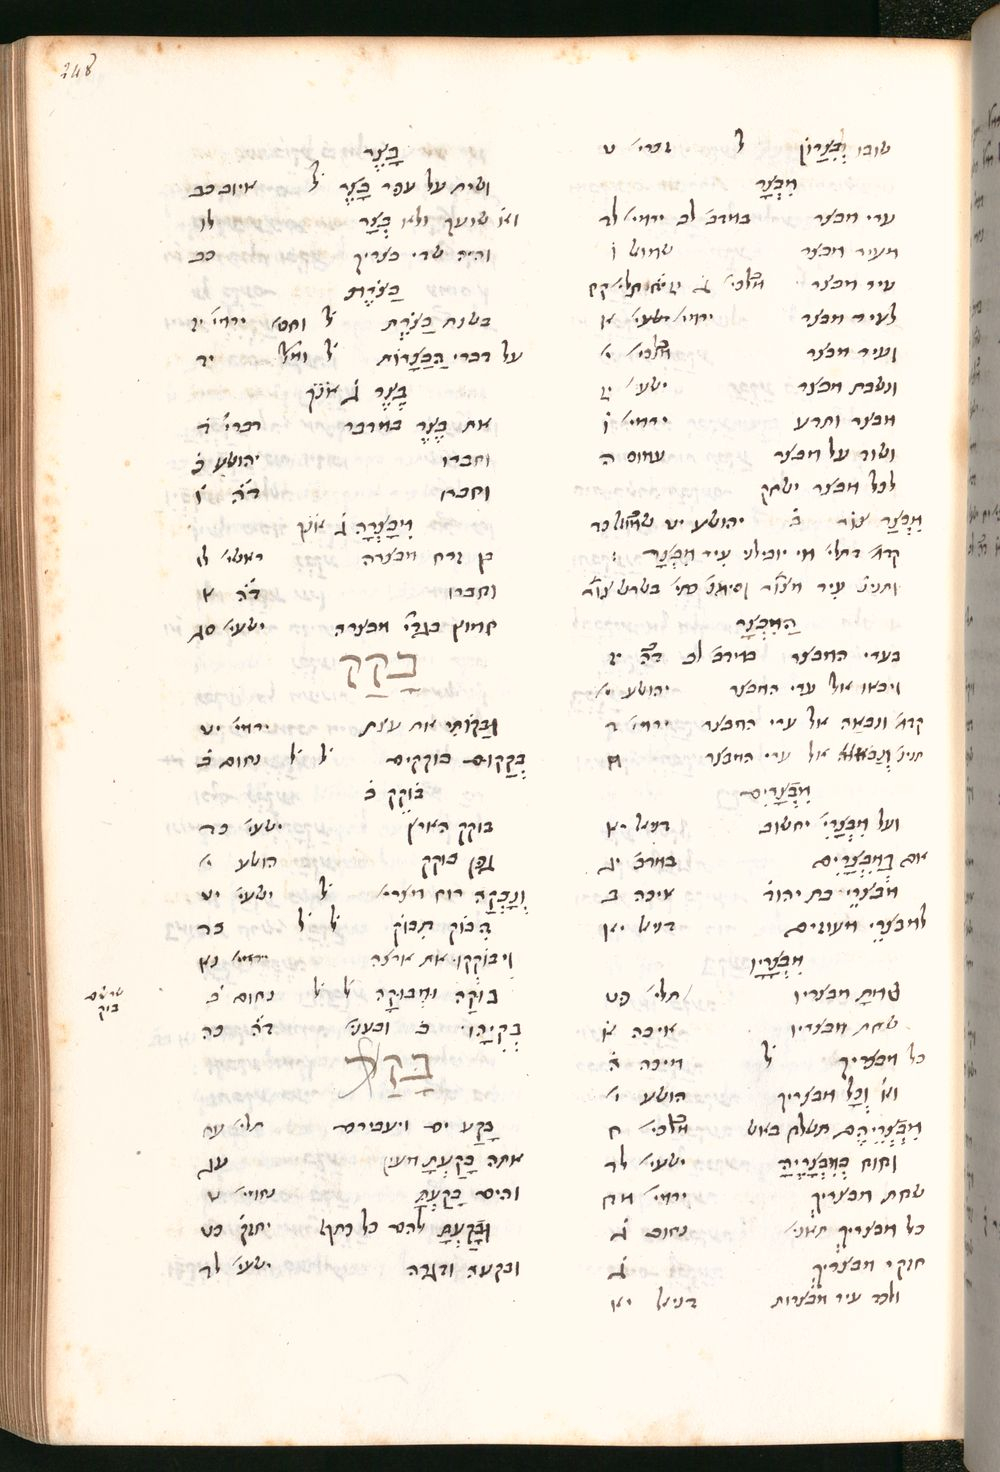 248
שובו לְבִצָּרוֹן ל זכרי׳ ט
מִבְצָר
ערי מבצר במדב׳ לב ירמי׳ לד
מעיר מבצר שמוש ו
עיר מבצר
לעיר מבצר ירמי׳ ישעי׳ א
ועיר מבצר מלכי׳ י
ונשבת מבצר ישעי׳ יז
מבצר ותדע ירמי׳ ו
ושוד על מבצר עמוס ה
לכל מבצר ישחק
מִבְצַר צור ב׳ יהושע יט שמואל כד
קדמ׳ דתלי׳ מי יובילני עיר מִבְצָר
ותנינ׳ עיר מצור וסימנ׳
הַמִּבְצָר
בערי המבצר במדב׳ לב
ויבאו אל ערי המבצר יהושע י
קדמ׳ ונבואה אל ערי המבצר ירמי׳ ד
תנינ׳ אל ערי המבצר ח
מִבְצָרִים
ועל מִבְצָרִי׳ יחשוב דניאל יא
אם בְּמִבְצָרִים במדב׳ יג
מבצרי בת יהוד׳ איכה ב
למבצרי מעוזים דניאל יא
מִבְצָרָיו
שַׂמְתָּ מבצריו תלי׳ פט
שחת מבצריו איכה א
כל מבצריך ל מיכה ה
וא׳ וְכָל מבצריך הושע י
מִבְצְרֵיהֶם תשלח באש מלכי׳ ח
וחוח בְּמִבְצָרֶיהָ ישעי׳ לד
שחת מבצריך ירמי׳ מח
כל מבצריך תאני׳ נחום ג
חזקי מבצריך ג
ולכד עיר מבצרות דניאל יא
בָּצֶר
ושית על עפר בָּצֶר ל איוב כב
וא׳ שועך ולא בְצָר לו
והיה שדי בצריך כב
בַּצֹּרֶת
בשנת בַּצֹּרֶת ל וחס׳ ירמי׳ יז
על דברי הַבַּצָּרוֹת ל ומל׳ יד
בֶּצֶר ג׳
את בֶּצֶר במדבר דברי׳ ד
וחברו יהושע כ
וחברו ד״ה ו
מִבָּצְרָה ג׳
בן זרח מבצרה ראשי׳ לו
וחברו ד״ה א
חמוץ בגדי׳ מבצרה ישעי׳ סג
בָּקַק
וּבַקּוֹתִי את עצת ירמי׳ יט
בְּקָקוּם בוקקים ל ל נחום ב
בּוֹקֵק ב
בוקק הארץ ישעי׳ כד
גפן בוקק הושע י
וְנָבְקָה רוח מצרי׳ ל ישעי׳ יט
הִבּוֹק תִּבּוֹק ל ל כד
וִיבוֹקְקוּ את ארצה ירמי׳ נא
בוּקָה וּמְבוּקָה ל ל נחום ב
שרשם
בוק
בֻּקִּיָּהוּ ב ובענינ׳ ד״ה כה
בָּקַע
בָּקַע ים ויעבירם תלי׳ עח
אתה בָקַעְתָּ מעין עד
והים בָקַעְתָּ נחמי׳ ט
וּבָקַעְתָּ להם כל יחזק׳ כט
ובקעה ודגרה ישעי׳ לד